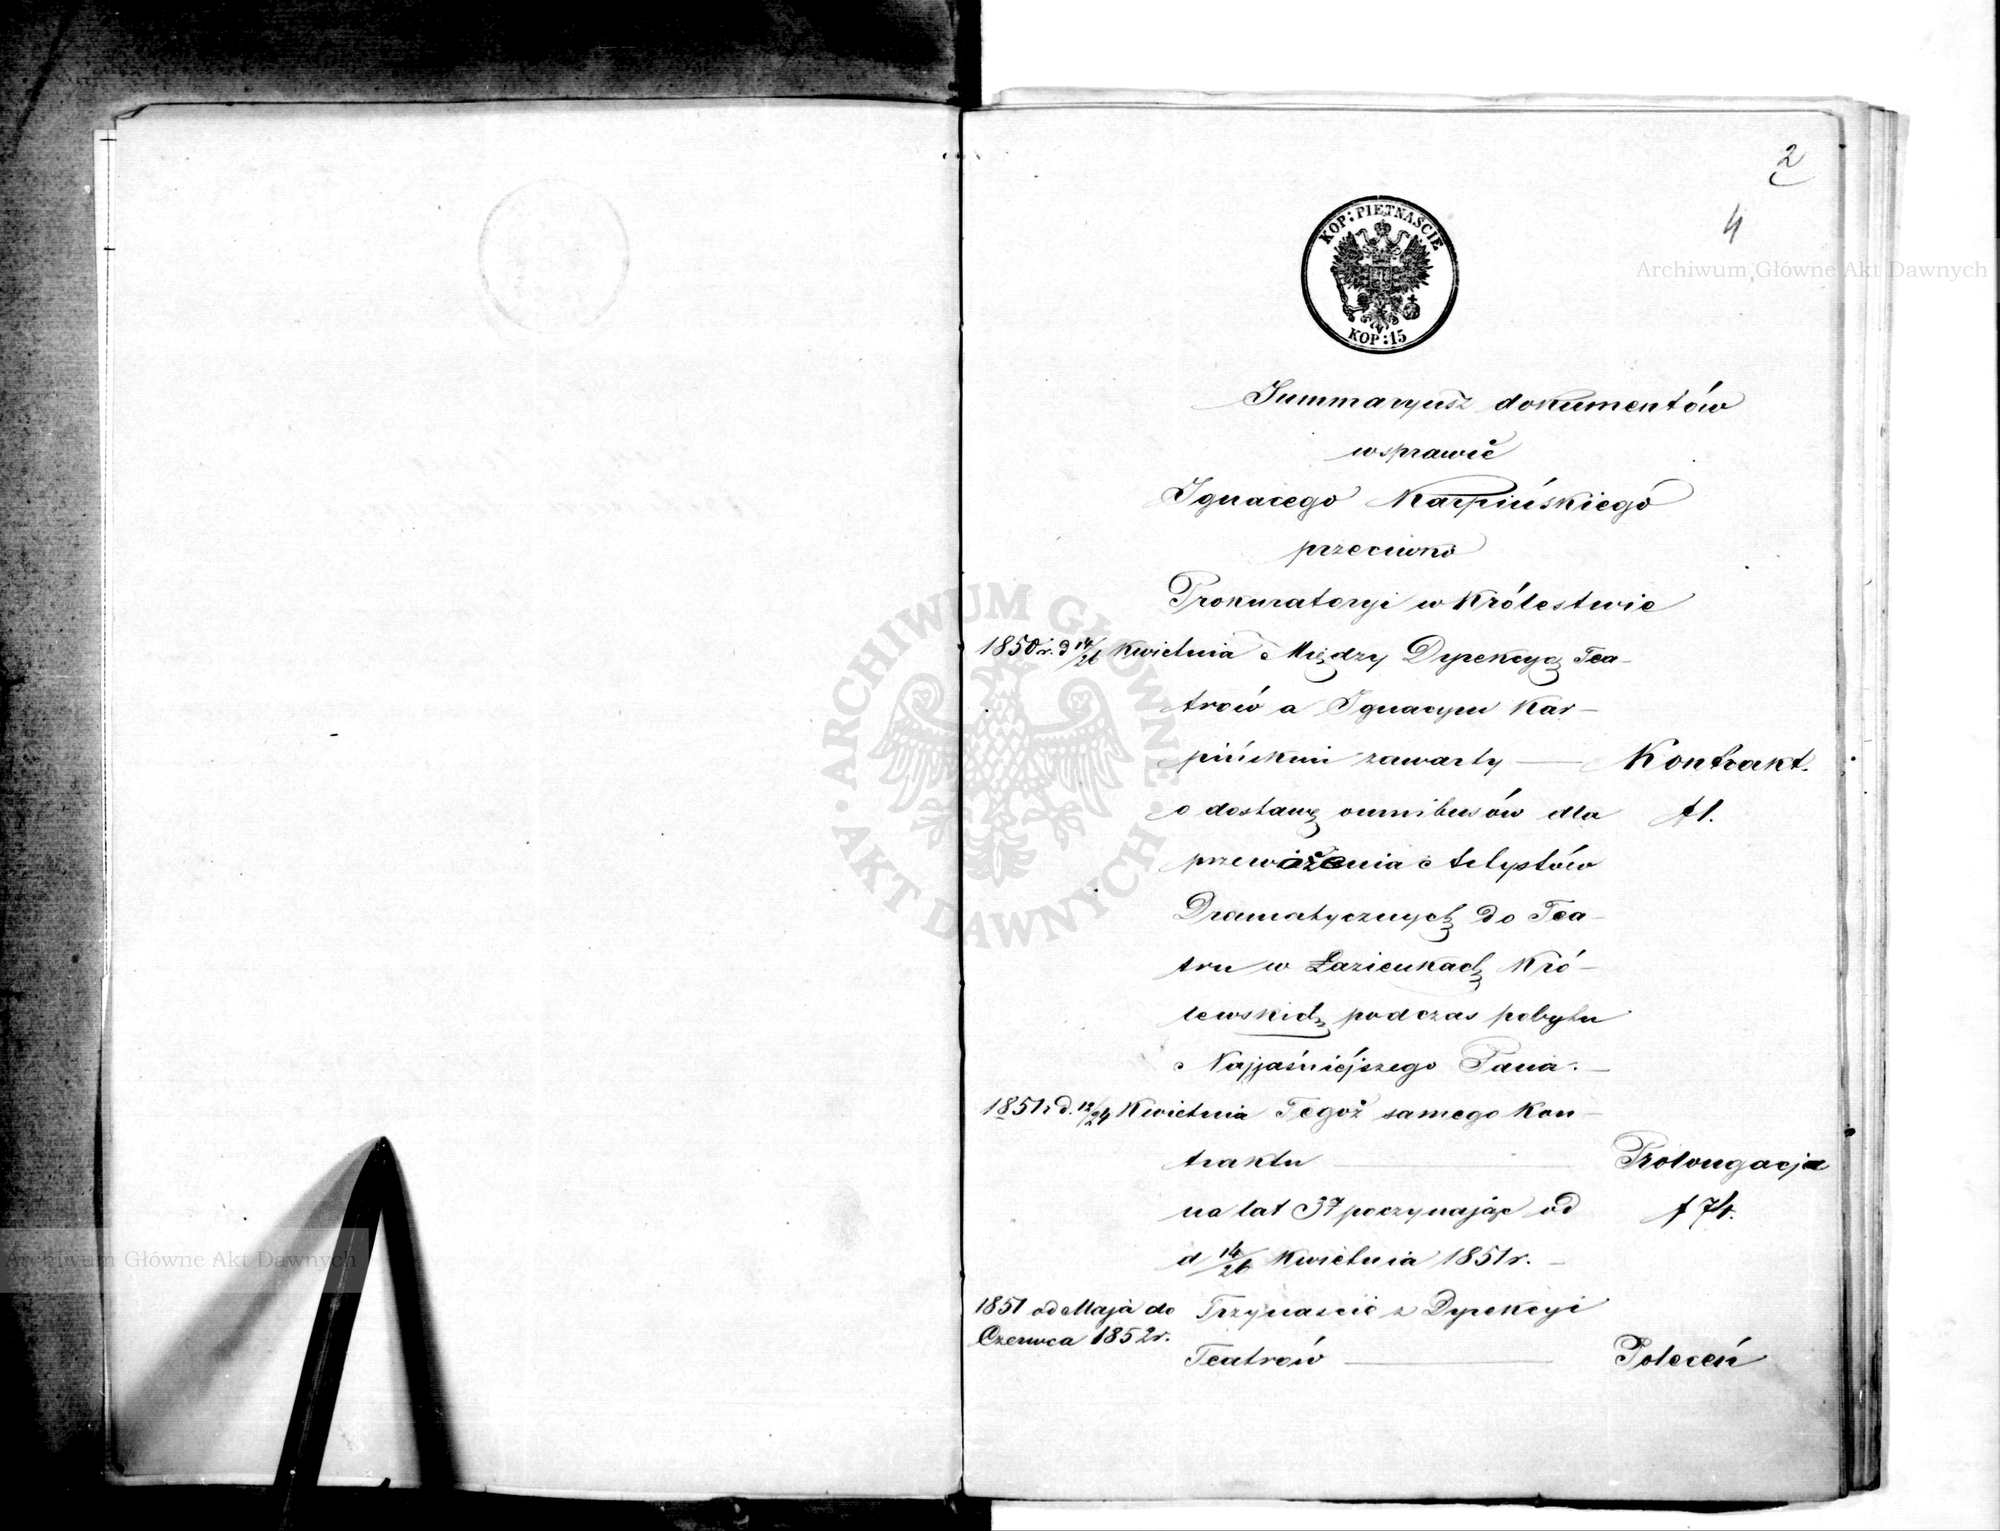 2
4
KOP: PIĘTNAŚCIE
KOP: 15
Archiwum Główne Akt Dawnych
Summaryusz dokumentów
w sprawie
Ignacego Karpińskiego
przeciwko
Prokuratoryi w Królestwie
1850 r. d 14/26 Kwietnia Między Dyrekcyą Tea-
trów a Ignacym Kar-
pińskim zawarty — Kontrakt.
o dostawę omnibusów dla f 1.
przewożenia Artystów
Dramatycznych do Tea-
tru w Łazienkach Kró-
lewskich podczas pobytu
Najjaśniejszego Pana. —
1851 r d. 12/24 Kwietnia Tegoż samego Kon-
traktu — Prolongacja
na lat 3 poczynając od f 74.
d 14/26 Kwietnia 1851 r. —
1851 od Maja do Trzynaście z Dyrekcyi
Czerwca 1852 r.
Teatrów — Poleceń
ARCHIWUM GŁÓWNE AKT DAWNYCH
Archiwum Główne Akt Dawnych